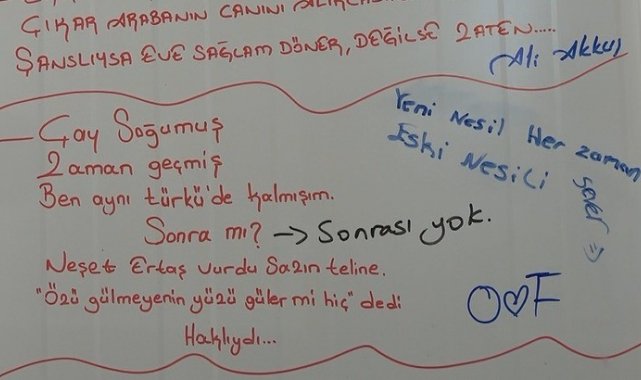 ÇIKAR ARABANIN CANINI
ŞANSLIYSA EVE SAĞLAM DÖNER, DEĞİLSE ZATEN.....
Ali Akkuş
Çay Soğumuş
Zaman geçmiş
Ben aynı türkü'de kalmışım.
Sonra mı? → Sonrası yok.
Neşet Ertaş vurdu Sazın teline.
"Özü gülmeyenin yüzü güler mi hiç" dedi
Haklıydı...
Yeni Nesil Her zaman
Eski Nesili sever =)
O♥F